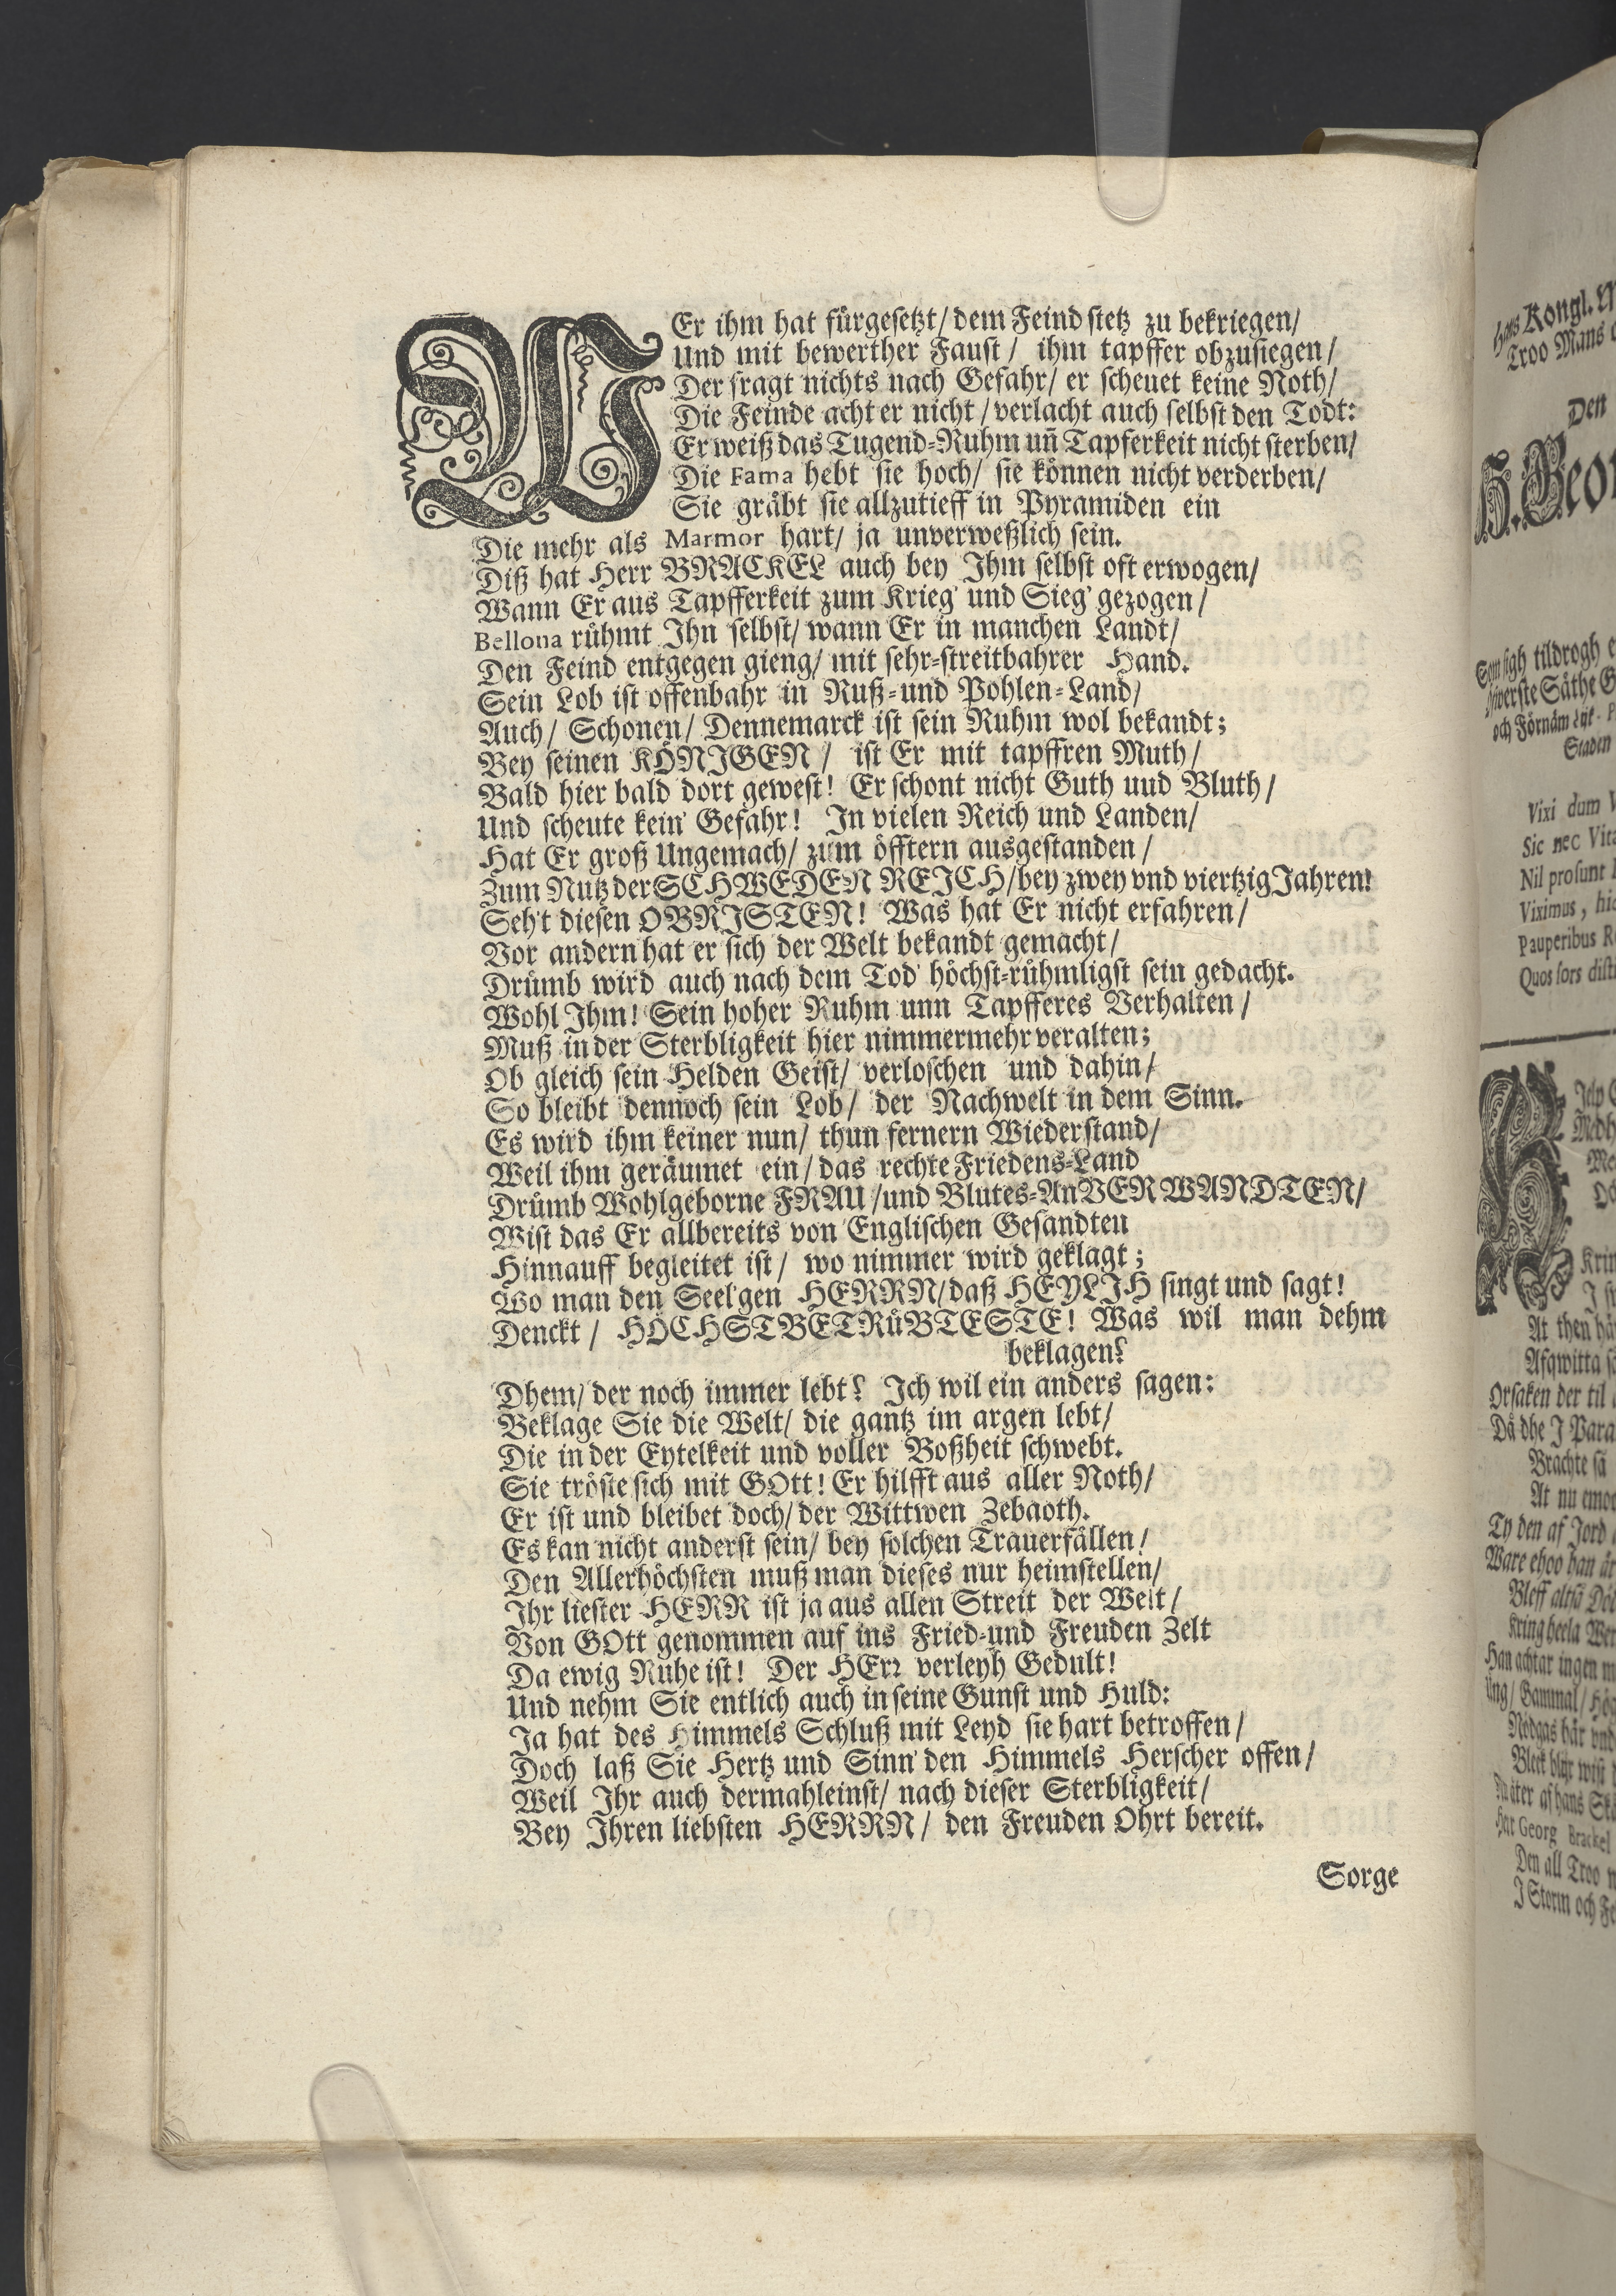 WEr ihm hat fürgesetzt/ dem Feind stetz zu bekriegen/
Und mit bewerther Faust/ ihm tapffer obzusiegen/
Der fragt nichts nach Gefahr/ er scheuet keine Noth/
Die Feinde acht er nicht/ verlacht auch selbst den Todt:
Er weiß das Tugend-Ruhm uñ Tapferkeit nicht sterben/
Die Fama hebt sie hoch/ sie können nicht verderben/
Sie gräbt sie allzutieff in Pyramiden ein
Die mehr als Marmor hart/ ja unverweßlich sein.
Diß hat Herr BRACKEL auch bey Ihm selbst oft erwogen/
Wann Er aus Tapfferkeit zum Krieg' und Sieg' gezogen/
Bellona rühmt Ihn selbst/ wann Er in manchen Landt/
Den Feind entgegen gieng/ mit sehr-streitbahrer Hand.
Sein Lob ist offenbahr in Ruß- und Pohlen-Land/
Auch/ Schonen/ Dennemarck ist sein Ruhm wol bekandt;
Bey seinen KÖNIGEN/ ist Er mit tapffren Muth/
Bald hier bald dort gewest! Er schont nicht Guth uud Bluth/
Und scheute kein' Gefahr! In vielen Reich und Landen/
Hat Er groß Ungemach/ zum öfftern ausgestanden/
Zum Nutz der SCHWEDEN REICH/ bey zwey vnd viertzig Jahren!
Seh't diesen OBRISTEN! Was hat Er nicht erfahren/
Vor andern hat er sich der Welt bekandt gemacht/
Drümb wird auch nach dem Tod' höchst-rühmligst sein gedacht.
Wohl Ihm! Sein hoher Ruhm unn Tapfferes Verhalten/
Muß in der Sterbligkeit hier nimmermehr veralten;
Ob gleich sein Helden Geist/ verloschen und dahin/
So bleibt dennoch sein Lob/ der Nachwelt in dem Sinn.
Es wird ihm keiner nun/ thun fernern Wiederstand/
Weil ihm geräumet ein/ das rechte Friedens-Land
Drümb Wohlgeborne FRAU/ und Blutes-AnVERWANDTEN/
Wist das Er allbereits von Englischen Gesandten
Hinnauff begleitet ist/ wo nimmer wird geklagt;
Wo man den Seel'gen HERRN/ daß HEYLIH singt und sagt!
Denckt/ HÖCHSTBETRüBTESTE! Was wil man dehm
beklagen?
Dhem/ der noch immer lebt? Ich wil ein anders sagen:
Beklage Sie die Welt/ die gantz im argen lebt/
Die in der Eytelkeit und voller Boßheit schwebt.
Sie tröste sich mit GOtt! Er hilfft aus aller Noth/
Er ist und bleibet doch/ der Wittwen Zebaoth.
Es kan nicht anderst sein/ bey solchen Trauerfällen/
Den Allerhöchsten muß man dieses nur heimstellen/
Ihr liester HERR ist ja aus allen Streit der Welt/
Von GOtt genommen auf ins Fried- und Freuden Zelt
Da ewig Ruhe ist! Der HErr verleyh Gedult!
Und nehm Sie entlich auch in seine Gunst und Huld:
Ja hat des Himmels Schluß mit Leyd sie hart betroffen/
Doch laß Sie Hertz und Sinn' den Himmels Herscher offen/
Weil Ihr auch dermahleinst/ nach dieser Sterbligkeit/
Bey Ihren liebsten HERRN/ den Freuden Ohrt bereit.
Sorge
Hans Kongl.
Troo Mans
Den
H. Geor
Som sigh tildrogh
och Förnäm
Staden
Vixi dum
Sic nec Vita
Nil prosunt
Viximus, hic
Pauperibus
Quos sors
At then
Afqwitta
Orsaken der til
Då dhe J Para
Brachte så
At nu
Ty den af Jord
Ware ehoo han är
Bleff altså
Kring heela
Han achtar ingen
Ung/ Gammal/
Har Georg Brackel
Den all Troo
J Storm och